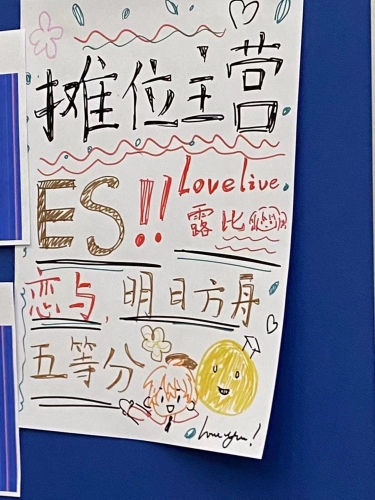 摊位主营
ES!!
Lovelive.
露比
恋与,明日方舟
五等分
love you!